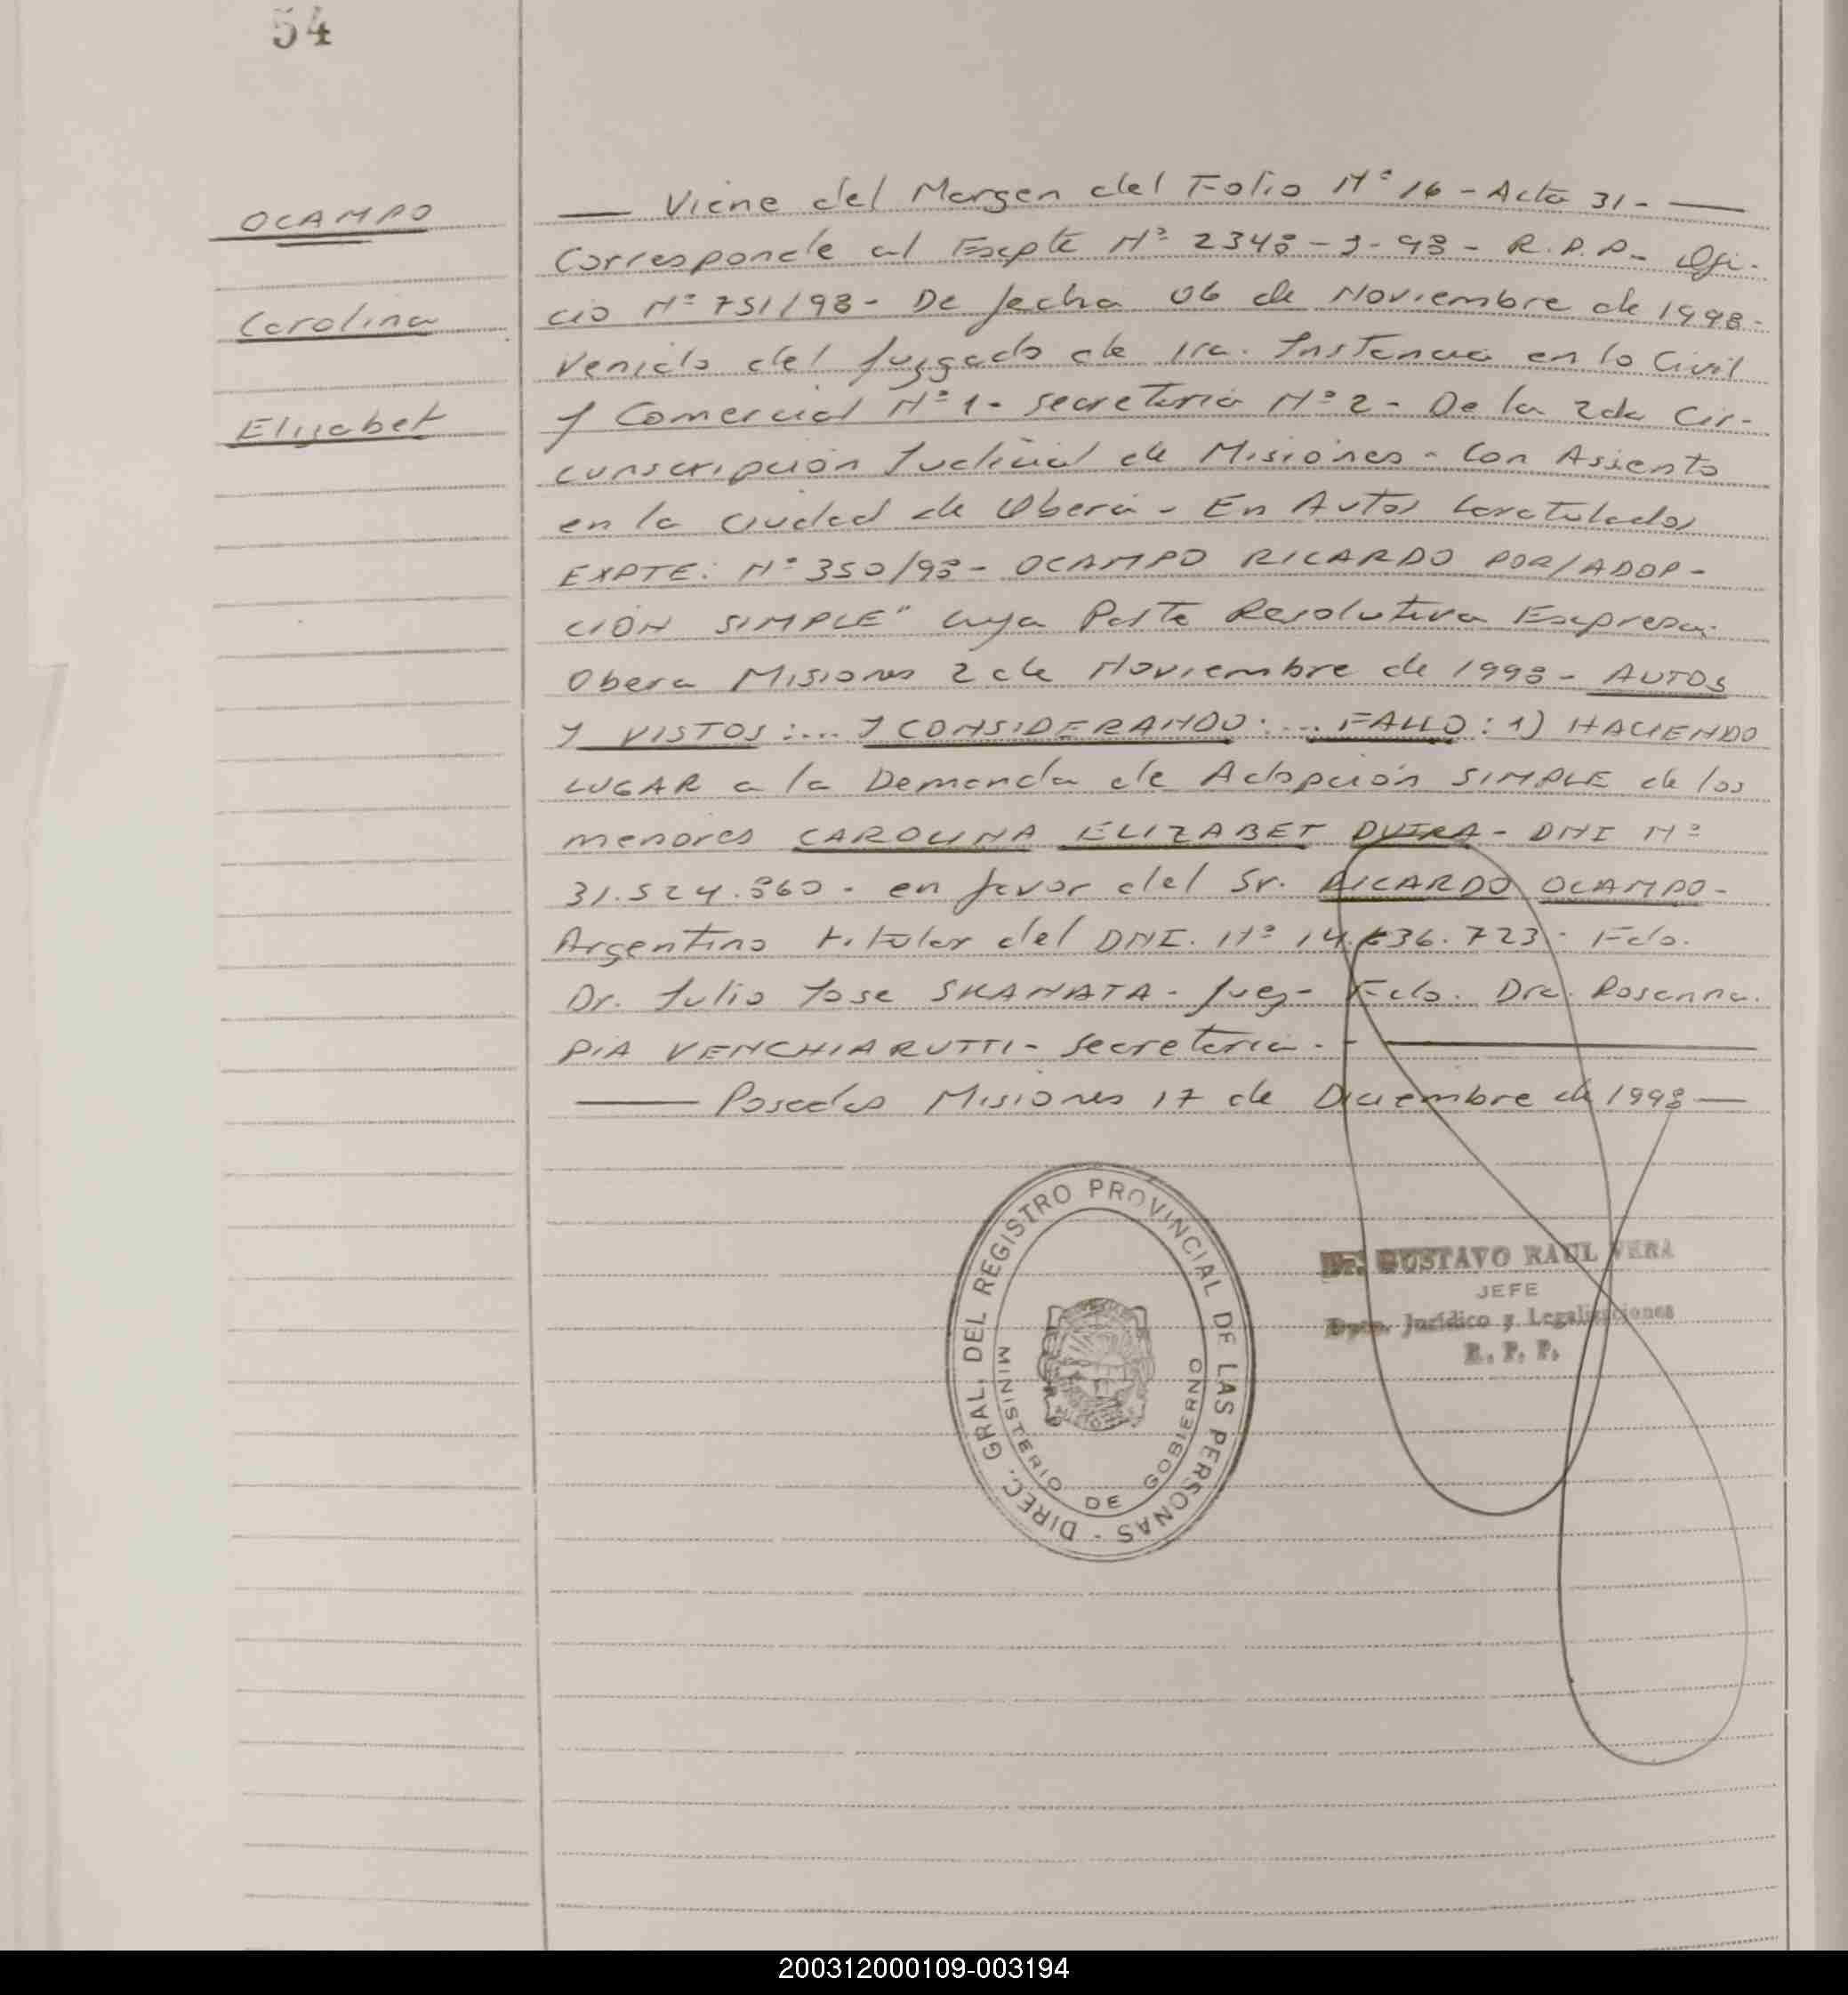 54
OCAMPO
Carolina
Elisabet
—— Viene del Margen del Folio Nº 16 - Acta 31. ——
Corresponde al Expte Nº 2348 - J - 98 - R.P.P. - Ofi-
cio Nº 751/98 - De fecha 06 de Noviembre de 1998 -
Venido del Juzgado de 1ra. Instancia en lo Civil
y Comercial Nº 1 - Secretaria Nº 2 - De la 2da Cir-
cunscripción Judicial de Misiones - Con Asiento
en la Ciudad de Obera - En Autos Caratulados
EXPTE: Nº 350/98 - OCAMPO RICARDO POR/ADOP-
CIÓN SIMPLE" cuya Parte Resolutiva Expresa:
Obera Misiones 2 de Noviembre de 1998 - AUTOS
Y VISTOS:... Y CONSIDERANDO:... FALLO: 1) HACIENDO
LUGAR a la Demanda de Adopción SIMPLE de los
menores CAROLINA ELIZABET DUTRA - DNI Nº
31.524.860 - en favor del Sr. RICARDO OCAMPO -
Argentino titular del DNI. Nº 14.636.723 - Fdo.
Dr. Julio Jose SKANATA - Juez - Fdo. Dra. Rosanna.
PIA VENCHIARUTTI - Secretaria. -
—— Posadas Misiones 17 de Diciembre de 1998 ——
DIREC. GRAL. DEL REGISTRO PROVINCIAL DE LAS PERSONAS -
MINISTERIO DE GOBIERNO
Dr. GUSTAVO RAUL VERA
JEFE
Dpto. Jurídico y Legalizaciones
R. P. P.
200312000109-003194